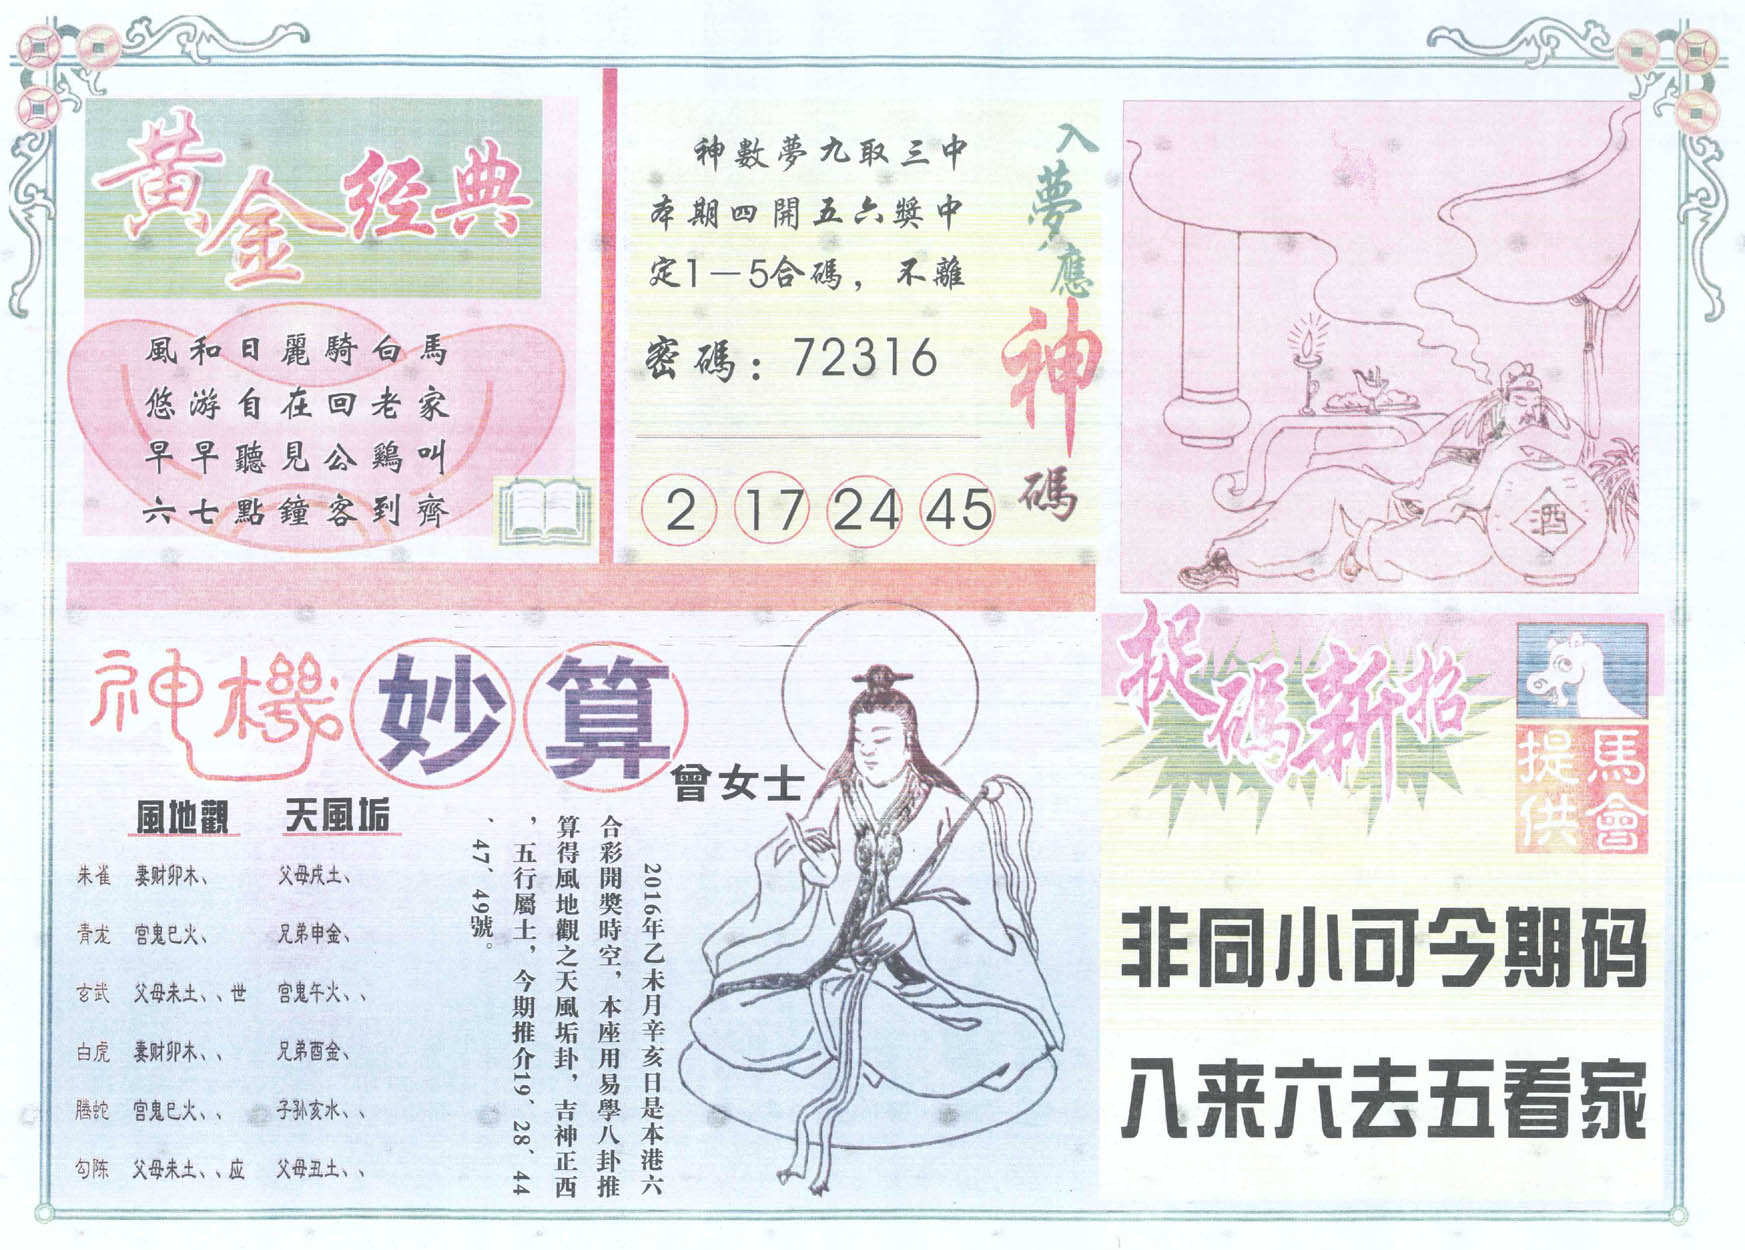 黄金经典
風和日麗騎白馬
悠游自在回老家
早早聽見公鷄叫
六七點鐘客到齊
入夢應神碼
神數夢九取三中
本期四開五六獎中
定1—5合碼，不離
密碼：72316
2 17 24 45
酒
神機妙算
曾女士
風地觀 天風垢
朱雀 妻财卯木、 父母戌土、
青龙 宫鬼巳火、 兄弟申金、
玄武 父母未土、、世 宫鬼午火、、
白虎 妻财卯木、、 兄弟酉金、
腾蛇 宫鬼巳火、、 子孙亥水、、
勾陈 父母未土、、应 父母丑土、、
2016年乙未月辛亥日是本港六
合彩開獎時空，本座用易學八卦推
算得風地觀之天風垢卦，吉神正西
，五行屬土，今期推介19、28、44
、47、49號。
捉碼新招
馬會提供
非同小可今期码
八来六去五看家